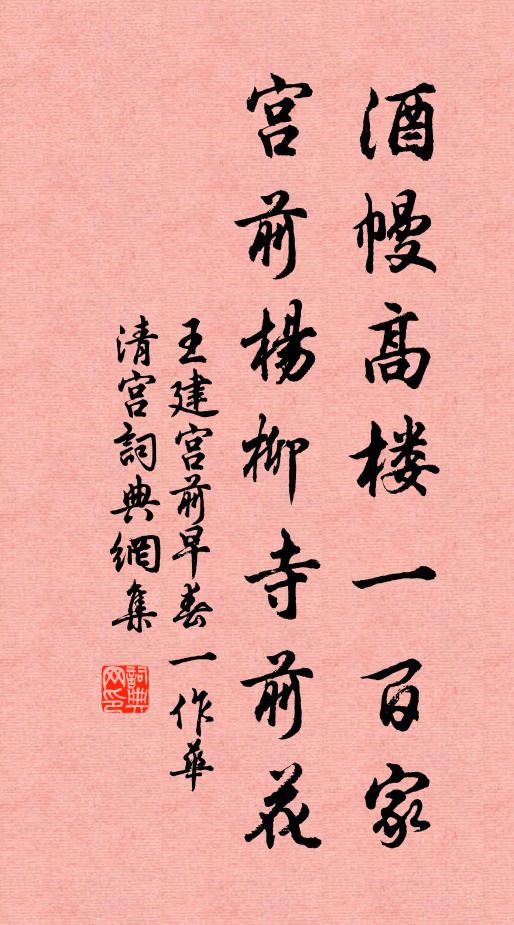 酒幔高楼一百家
宫前楊柳寺前花
王建宫前早春一作華
清宫詞典網集
詞典网印